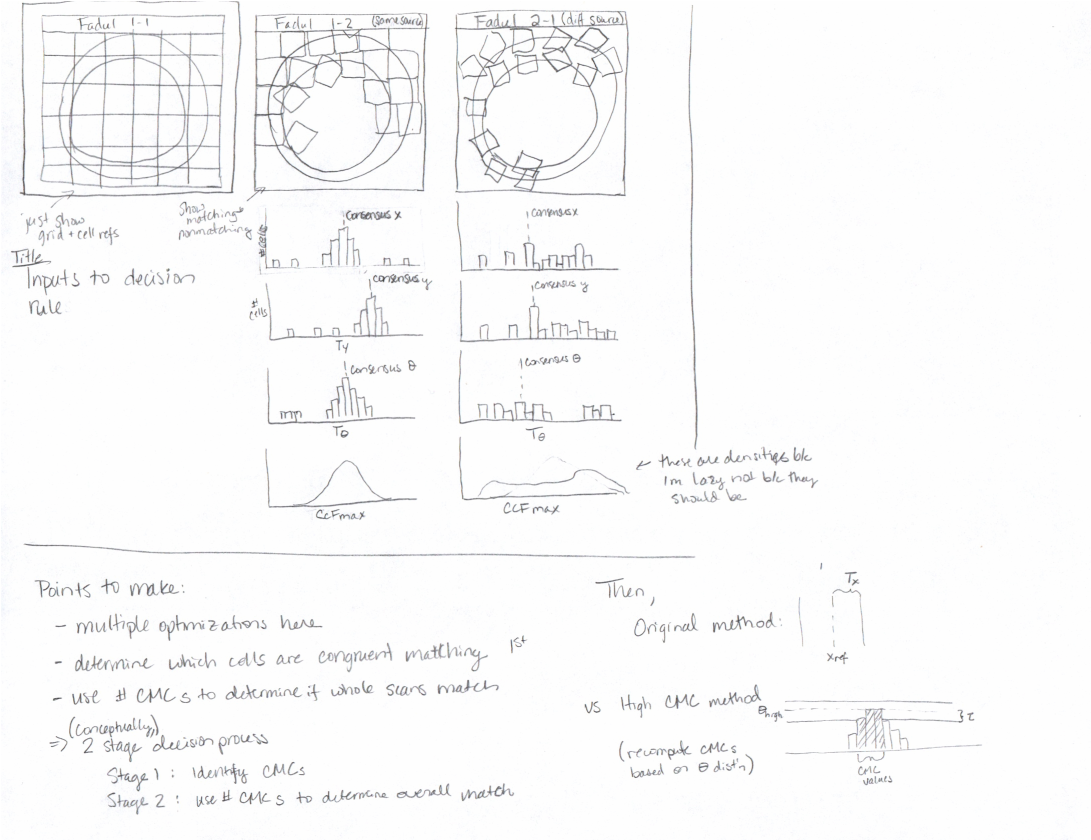 Fadul 1-1
Fadul 1-2 (same source)
Fadul 2-1 (diff source)
just show
grid + cell refs
Show
matching +
nonmatching
Title
Inputs to decision
rule
consensus x
consensus x
# cells
consensus y
consensus y
# cells
Ty
consensus θ
consensus θ
Tθ
Tθ
CCFmax
CCFmax
← these are densities b/c
I'm lazy not b/c they
should be
Points to make:
- multiple optimizations here
- determine which cells are congruent matching 1st
- use # CMCs to determine if whole scans match
(conceptually)
⇒ 2 stage decision process
Stage 1: Identify CMCs
Stage 2: use # CMCs to determine overall match
Then,
Original method:
Tx
xref
vs High CMC method
(recompute CMCs
based on θ dist'n)
θhigh
τ
CMC
values